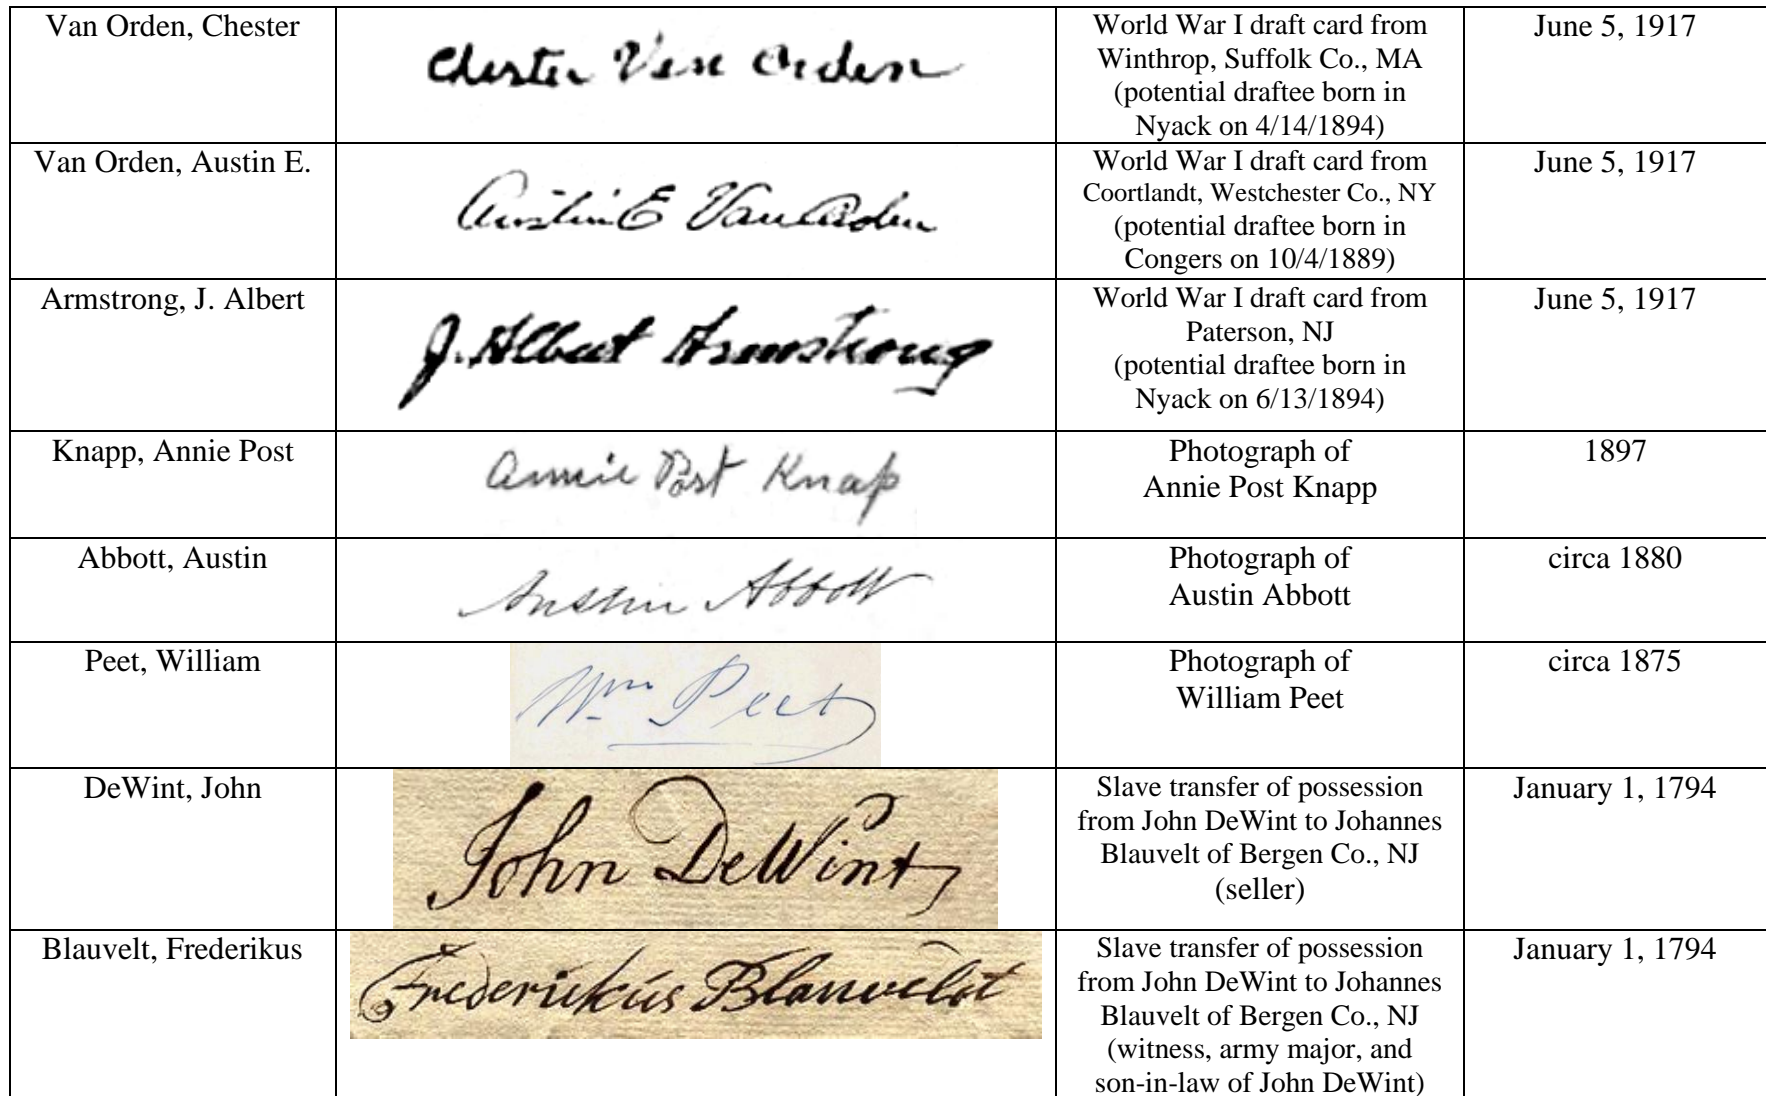 Van Orden, Chester
Chester Van Orden
World War I draft card from
Winthrop, Suffolk Co., MA
(potential draftee born in
Nyack on 4/14/1894)
June 5, 1917
Van Orden, Austin E.
Austin E Van Orden
World War I draft card from
Coortlandt, Westchester Co., NY
(potential draftee born in
Congers on 10/4/1889)
June 5, 1917
Armstrong, J. Albert
J. Albert Armstrong
World War I draft card from
Paterson, NJ
(potential draftee born in
Nyack on 6/13/1894)
June 5, 1917
Knapp, Annie Post
Annie Post Knap
Photograph of
Annie Post Knapp
1897
Abbott, Austin
Austin Abbott
Photograph of
Austin Abbott
circa 1880
Peet, William
Wm Peet
Photograph of
William Peet
circa 1875
DeWint, John
John DeWint
Slave transfer of possession
from John DeWint to Johannes
Blauvelt of Bergen Co., NJ
(seller)
January 1, 1794
Blauvelt, Frederikus
Frederickus Blauvelt
Slave transfer of possession
from John DeWint to Johannes
Blauvelt of Bergen Co., NJ
(witness, army major, and
son-in-law of John DeWint)
January 1, 1794